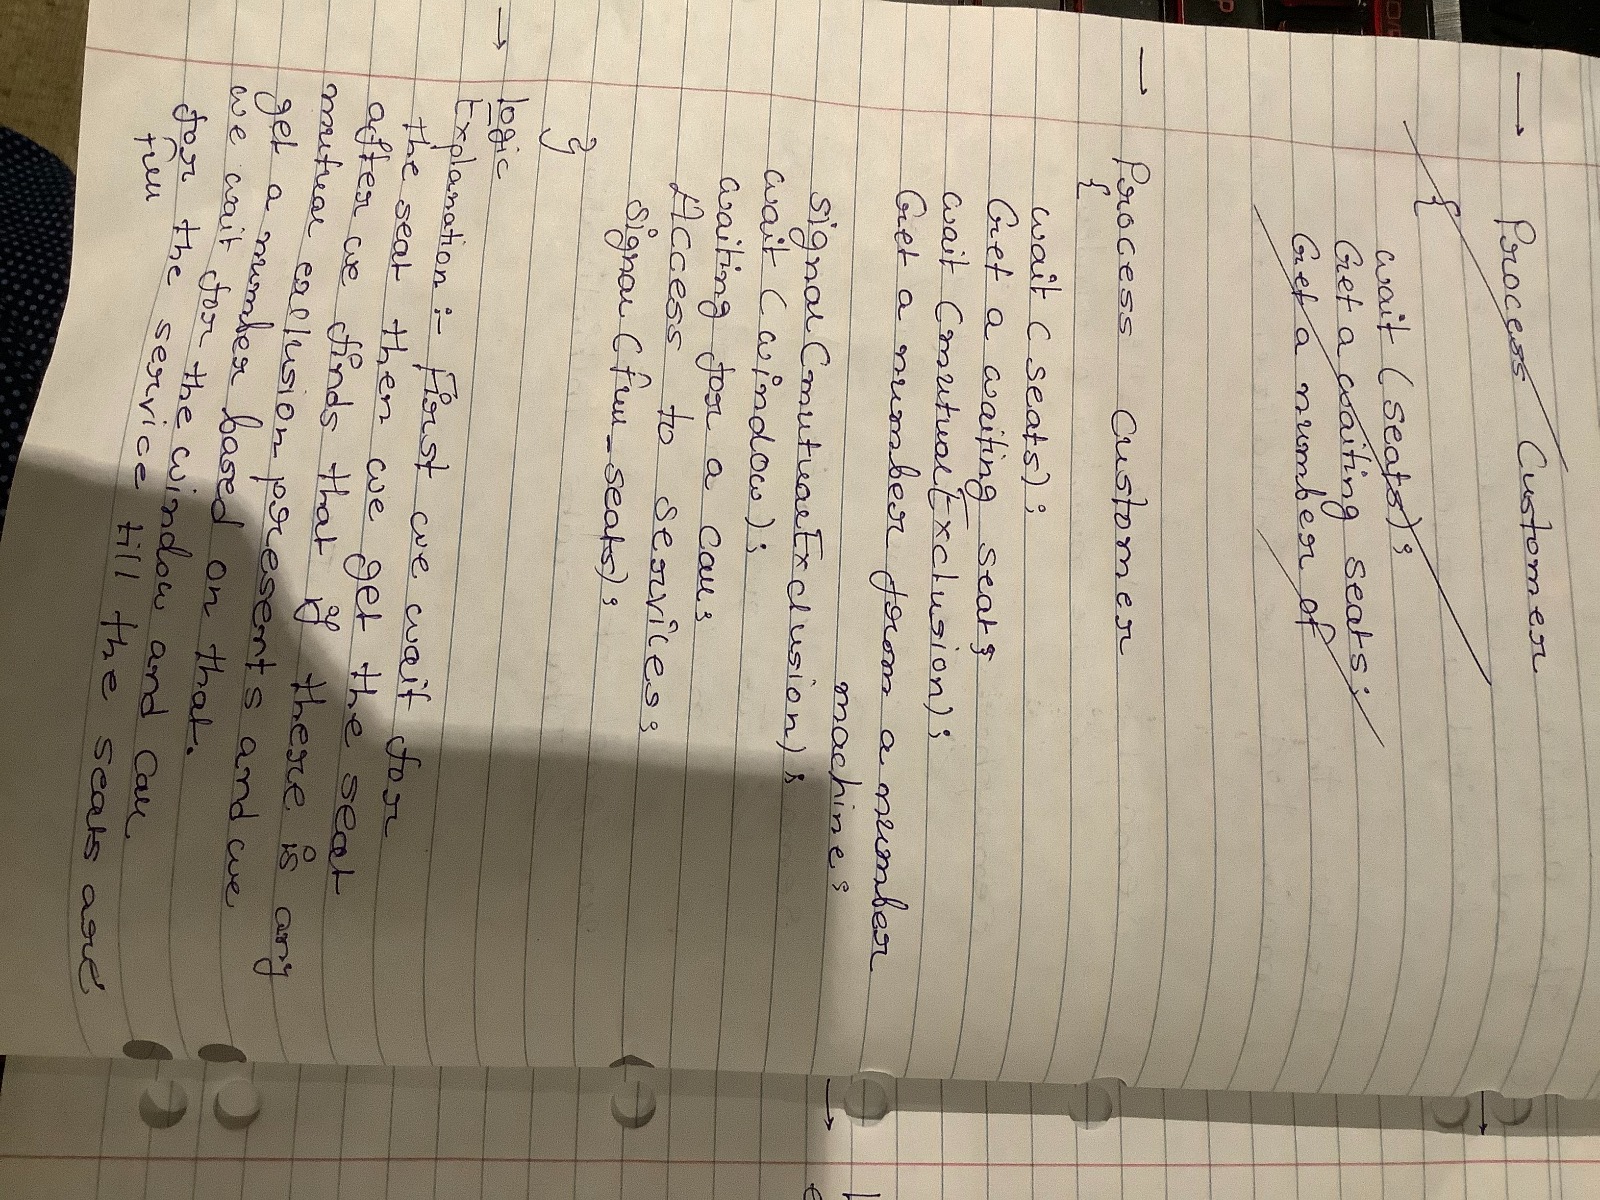 → Process Customer
{
wait (seats);
Get a waiting seats;
Get a number of
→ Process Customer
{
wait (seats);
Get a waiting seat;
wait (mutualExclusion);
Get a number from a number
machine;
signal (mutualExclusion);
wait (window);
waiting for a call;
Access to services;
signal (full_seats);
}
→ logic
Explanation :- First we wait for
the seat then we get the seat
after we finds that if there is any
mutual exclusion presents and we
get a number based on that.
we wait for the window and call
for the service till the seats are
full